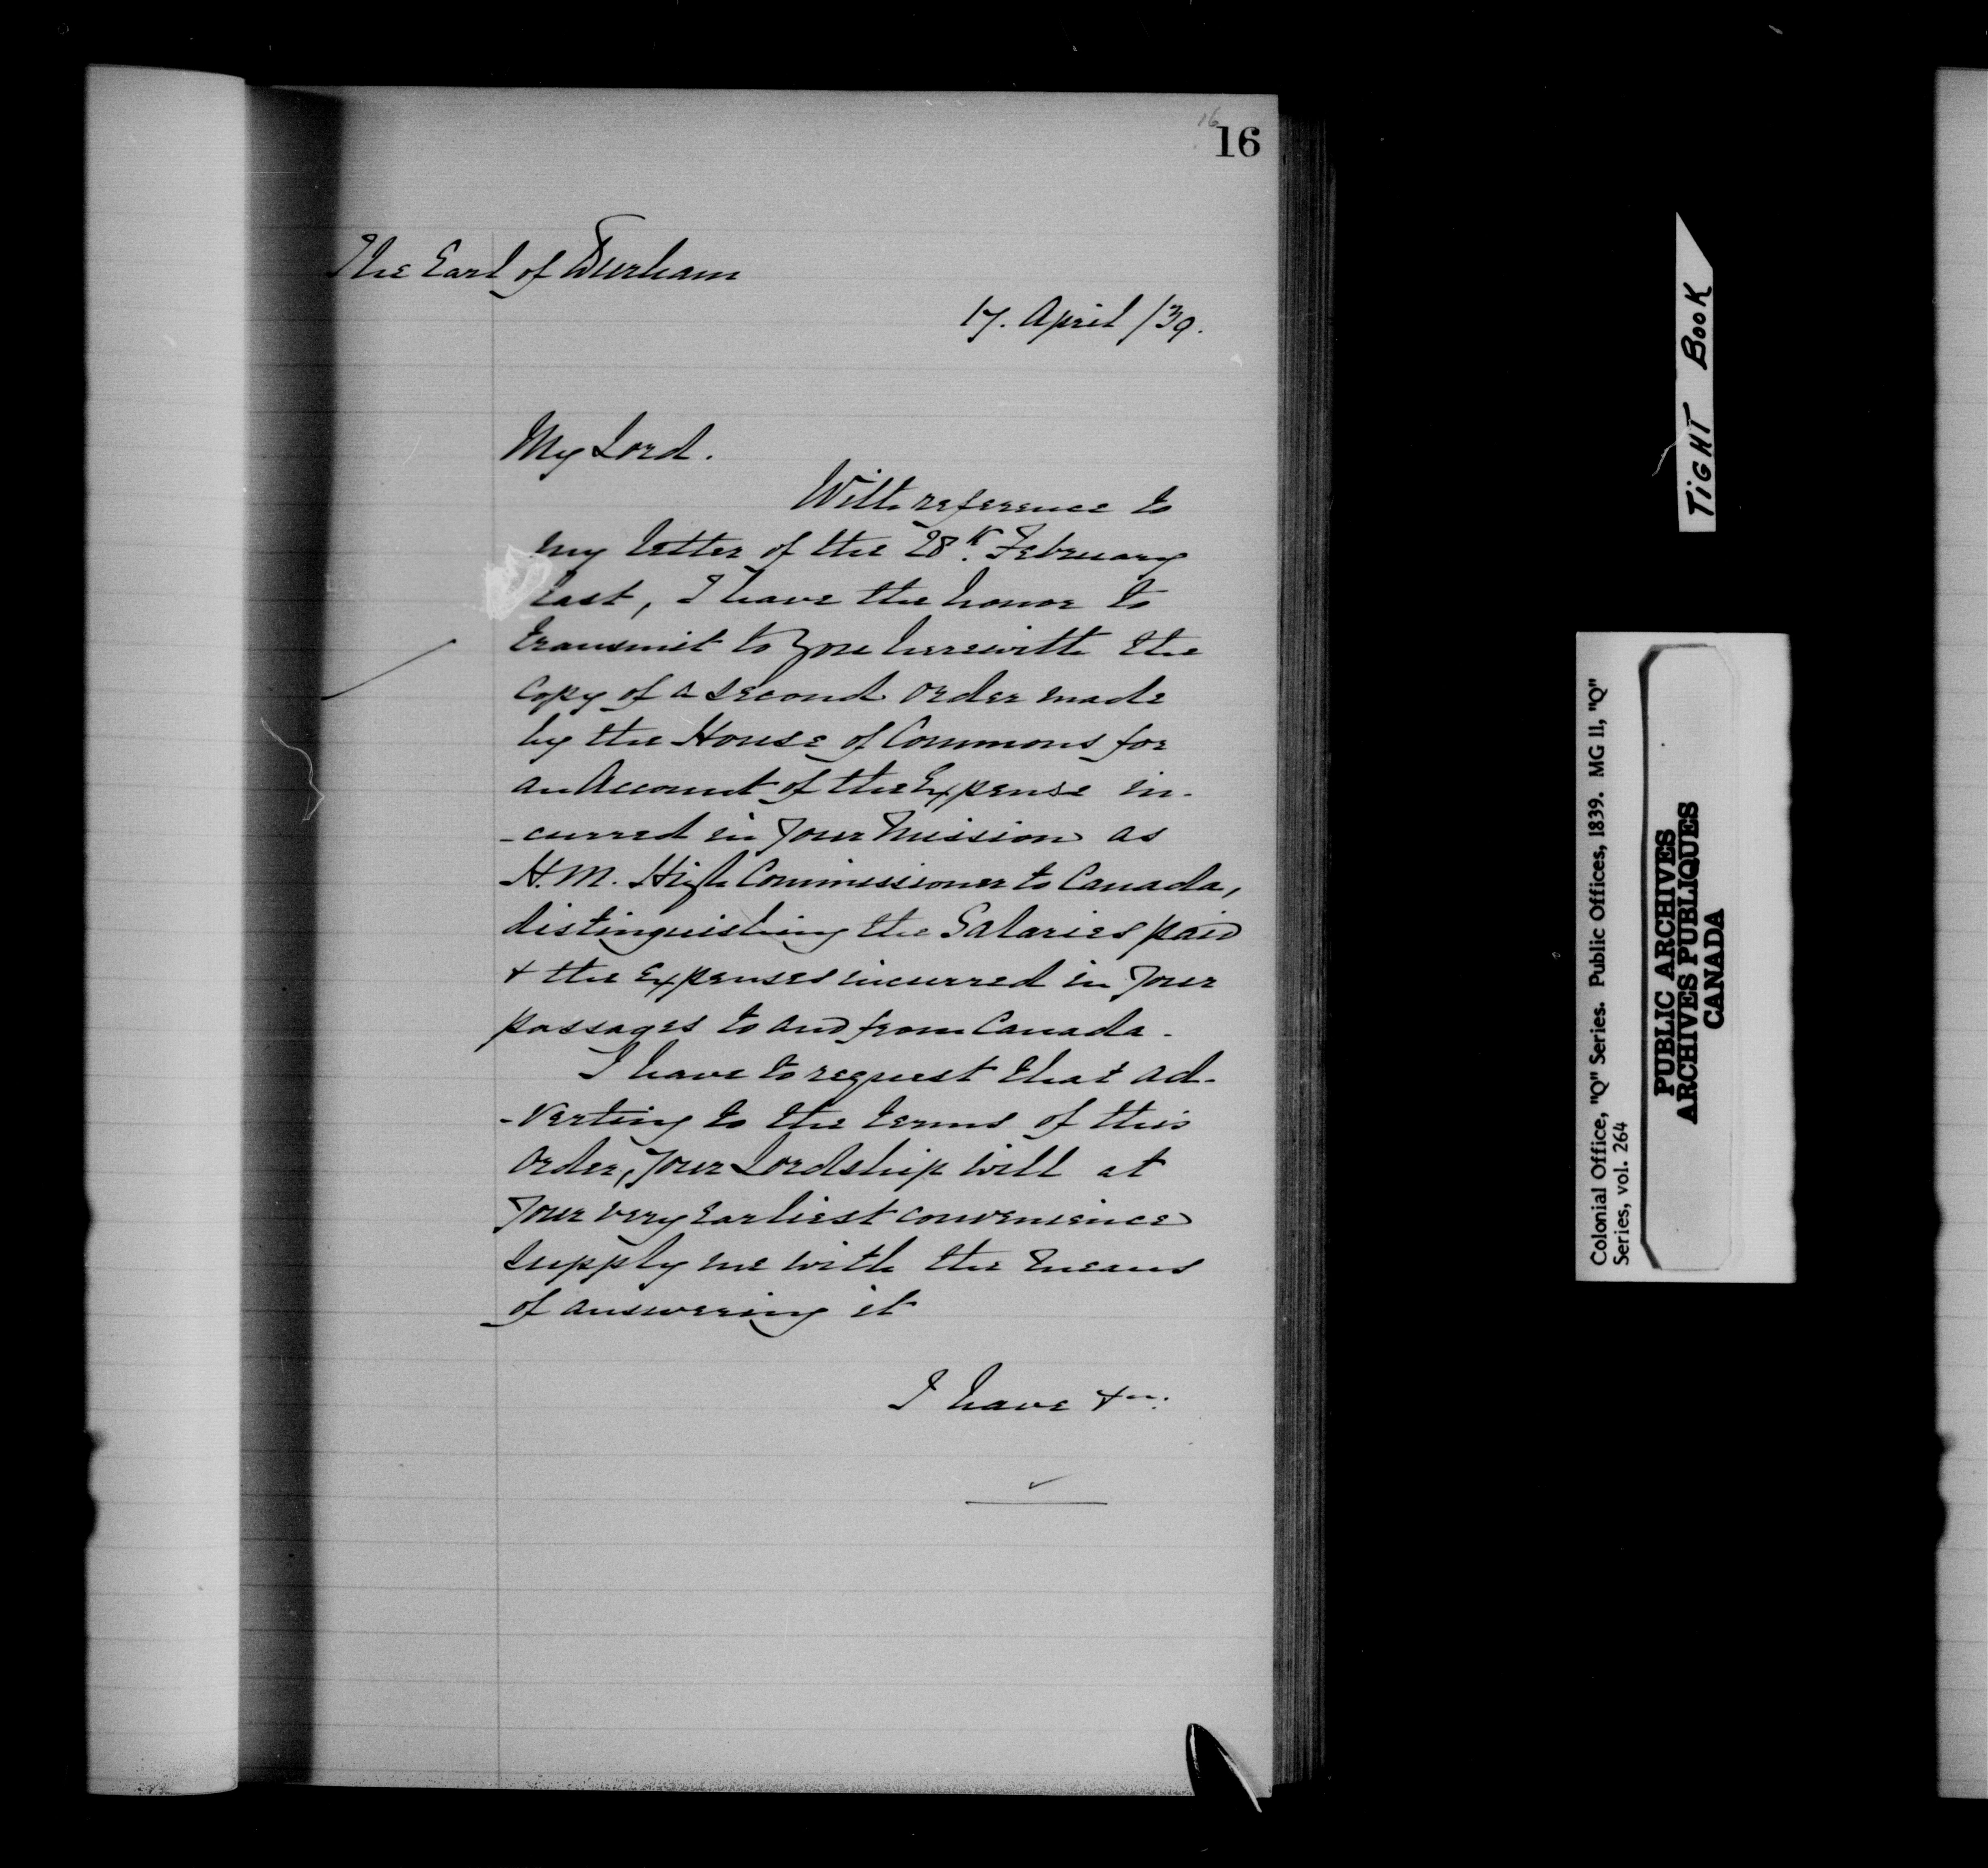 16
16
The Earl of Durham
17. April /39.
My Lord.
With reference to
my letter of the 28th. February
last, I have the honor to
transmit to you herewith the
copy of a second order made
by the House of Commons for
an Account of the Expense in-
-curred in your Mission as
H.M. High Commissioner to Canada,
distinguishing the Salaries paid
& the Expenses incurred in your
passages to and from Canada.
I have to request that ad-
-verting to the terms of this
order, your Lordship will at
your very earliest convenience
supply me with the means
of answering it
I have &c.
TIGHT BOOK
Colonial Office, "Q" Series. Public Offices, 1839. MG 11, "Q"
Series, vol. 264
PUBLIC ARCHIVES
ARCHIVES PUBLIQUES
CANADA